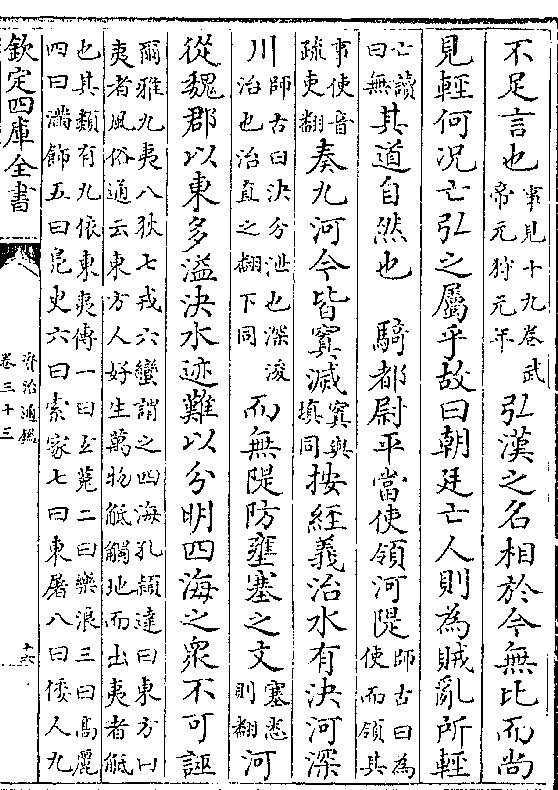 不足言也事見十九卷武帝元狩元年弘漢之名相於今無比而尚
見輕何况亡弘之屬乎故曰朝廷亡人則為賊亂所輕
亡讀曰無其道自然也　騎都尉平當使領河隄師古曰為使而領其
事使音疏吏翻奏九河今皆寘滅寘與填同按經義治水有決河深
川師古曰決分泄也深浚治也治直之翻下同而無隄防壅塞之文塞悉則翻河
從魏郡以東多溢決水迹難以分明四海之衆不可誣
爾雅九夷八狄七戎六蠻謂之四海孔頴達曰東方曰
夷者風俗通云東方人好生萬物觝觸地而出夷者觝
也其類有九依東夷傳一曰玄菟二曰樂浪三曰高麗
四曰滿飾五曰鳬史六曰索家七曰東屠八曰倭人九
欽定四庫全書
資治通鑑
卷三十三
十六